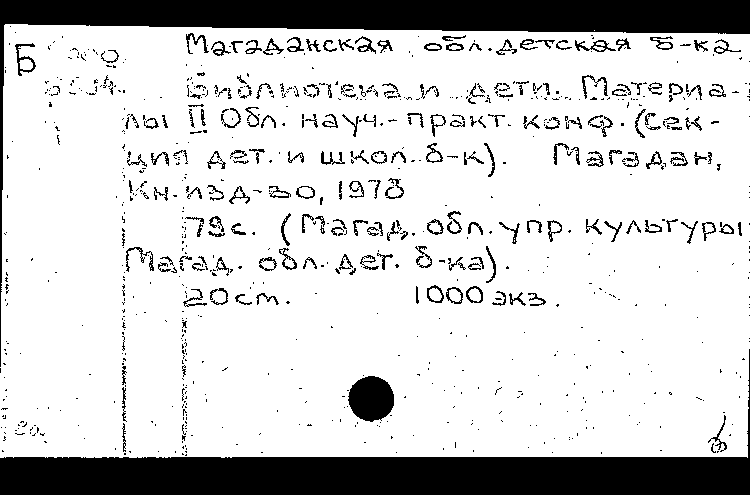 Б
Магаданская обл. детская б-ка
Библиотека и дети. Материа-
лы II Обл. науч.-практ. конф. (Сек-
ция дет. и школ. б-к). Магадан,
Кн. изд-во, 1978
79 с. (Магад. обл. упр. культуры
Магад. обл. дет. б-ка).
20 см. 1000 экз.